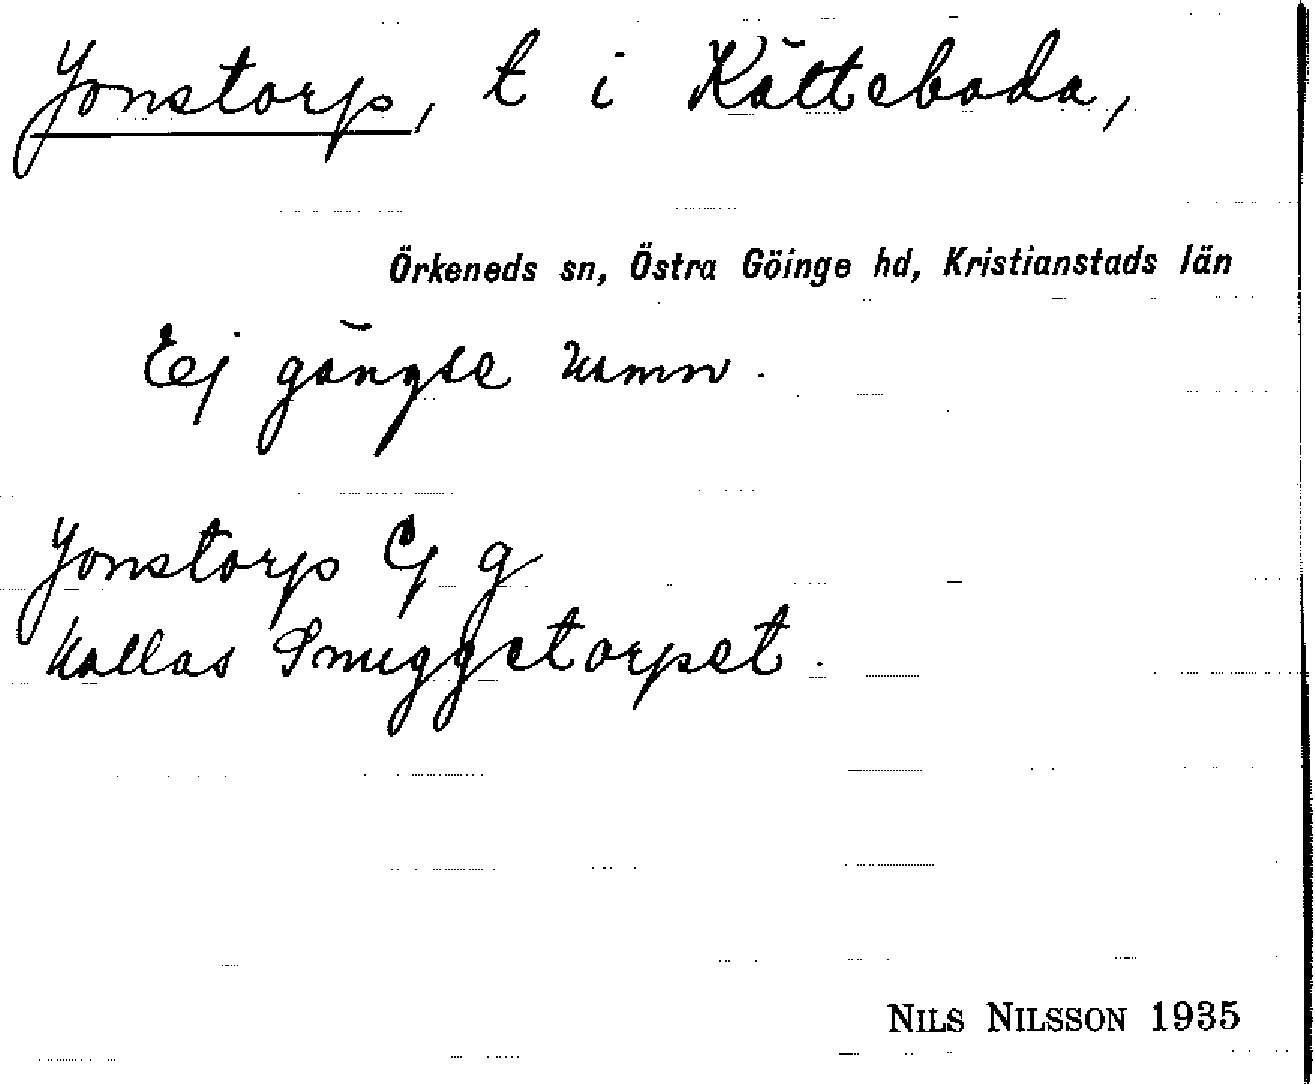 Jonstorp, t i Kätteboda,
Örkeneds sn, Östra Göinge hd, Kristianstads län
Ej gängse namn.
Jonstorp Ej g
kallas Snuggetorpet.
NILS NILSSON 1935